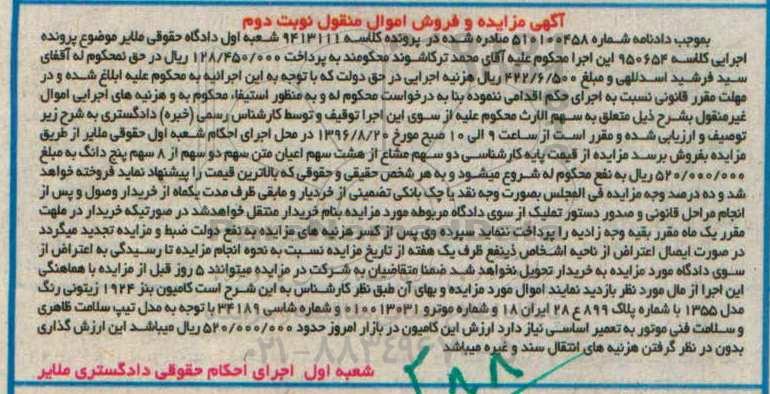 آگهی مزایده و فروش اموال منقول نوبت دوم
بموجب دادنامه شماره ۵۱۰۱۰۰۴۵۸ صادره شده در پرونده کلاسه ۹۴۱۳۱۱۱ شعبه اول دادگاه حقوقی ملایر موضوع پرونده
اجرایی کلاسه ۹۵۰۶۵۴ این اجرا محکوم علیه آقای محمد ترکاشوند محکومند به پرداخت ۱۲۸/۴۵۰/۰۰۰ ریال در حق تمحکوم له آقفای
سید فرشید اسدللهی و مبلغ ۴۲۲/۶/۵۰۰ ریال هزینه اجرایی در حق دولت که با توجه به این اجرائیه به محکوم علیه ابلاغ شده و در
مهلت مقرر قانونی نسبت به اجرای حکم اقدامی ننموده بنا به درخواست محکوم له و به منظور استیفا، محکوم به و هزینه های اجرایی اموال
غیرمنقول بشرح ذیل متعلق به سهم الارث محکوم علیه از سوی این اجرا توقیف و توسط کارشناس رسمی (خبره) دادگستری به شرح زیر
توصیف و ارزیابی شده و مقرر است از ساعت ۹ الی ۱۰ صبح مورخ ۱۳۹۶/۸/۲۰ در محل اجرای احکام شعبه اول حقوقی ملایر از طریق
مزایده بفروش برسد مزایده از قیمت پایه کارشناسی دو سهم مشاع از هشت سهم اعیان متن سهم دو سهم از ۸ سهم پنج دانگ به مبلغ
۵۲۰/۰۰۰/۰۰۰ ریال به نفع محکوم له شروع میشود و به هر شخص حقیقی و حقوقی که بالاترین قیمت را پیشنهاد نماید فروخته خواهد
شد و ده درصد وجه مزایده فی المجلس بصورت وجه نقد یا چک بانکی تضمینی از خردیار و مابقی ظرف مدت یکماه از خریدار وصول و پس از
انجام مراحل قانونی و صدور دستور تملیک از سوی دادگاه مربوطه مورد مزایده بنام خریدار منتقل خواهدشد در صورتیکه خریدار در ملهت
مقرر یک ماه مقرر بقیه وجه زادیه را پرداخت ننماید سپرده وی پس از کسر هزنیه های مزایده به نفع دولت ضبط و مزایده تجدید میگردد
در صورت ایصال اعتراض از ناحیه اشخاص ذینفع ظرف یک هفته از تاریخ مزایده نسبت به نحوه انجام مزایده تا رسیدگی به اعتراض از
سوی دادگاه مورد مزایده به خریدار تحویل نخواهد شد ضمنا متقاضیان به شرکت در مزایده میتوانند ۵ روز قبل از مزایده با هماهنگی
این اجرا از مال مورد نظر بازدید نمایند اموال مورد مزایده و بهای آن طبق نظر کارشناس به این شرح است کامیون بنز ۱۹۲۴ زیتونی رنگ
مدل ۱۳۵۵ با شماره پلاک ۸۹۹ ع ۲۸ ایران ۱۸ و شماره موترو ۰۱۰۰۱۳۰۳۱ و شماره شاسی ۳۴۱۸۹ با توجه به مدل تیپ سلامت ظاهری
و سلامت فنی موتور به تعمیر اساسی نیاز دارد ارزش این کامیون در بازار امروز حدود ۵۲۰/۰۰۰/۰۰۰ ریال میباشد این ارزش گذاری
بدون در نظر گرفتن هزنیه های انتقال سند و غیره میباشد
شعبه اول اجرای احکام حقوقی دادگستری ملایر